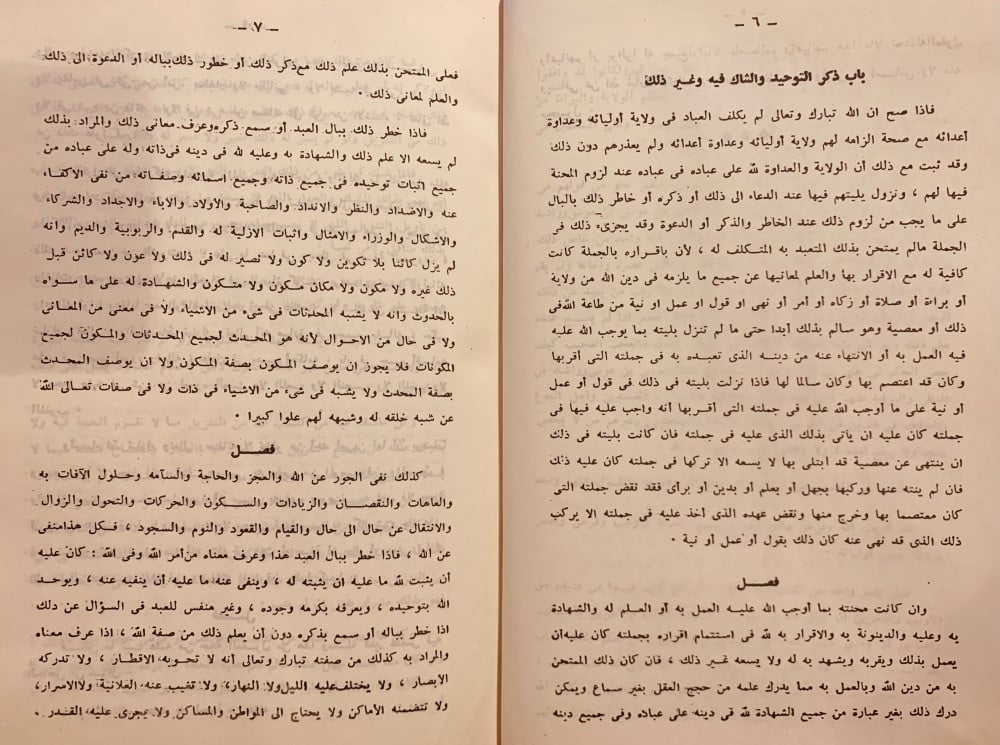 - ٦ -
باب ذكر التوحيد والشاك فيه وغير ذلك
فاذا صح ان الله تبارك وتعالى لم يكلف العباد فى ولاية أوليائه وعداوة
أعدائه مع صحة الزامه لهم ولاية أوليائه وعداوة أعدائه ولم يعذرهم دون ذلك
وقد ثبت مع ذلك أن الولاية والعداوة لله على عباده فى عباده عند لزوم المحنة
فيها لهم ، ونزول بليتهم فيها عند الدعاء الى ذلك أو ذكره أو خاطر ذلك بالبال
على ما يجب من لزوم ذلك عند الخاطر والذكر أو الدعوة وقد يجزىء ذلك فى
الجملة مالم يمتحن بذلك المتعبد به المتكلف له ، لأن باقراره بالجملة كانت
كافية له مع الاقرار بها والعلم لمعانيها عن جميع ما يلزمه فى دين الله من ولاية
أو براءة أو صلاة أو زكاه أو أمر أو نهى او قول او عمل او نية من طاعة الله فى
ذلك أو معصية وهو سالم بذلك أبدا حتى ما لم تنزل بليته بما يوجب الله عليه
فيه العمل به أو الانتهاء عنه من دينه الذى تعبده به فى جملته التى أقربها
وكان قد اعتصم بها وكان سالما لها فاذا نزلت بليته فى ذلك فى قول أو عمل
أو نية على ما أوجب الله عليه فى جملته التى أقربها أنه واجب عليه فيها فى
جملته كان عليه ان ياتى بذلك الذى عليه فى جملته فان كانت بليته فى ذلك
ان ينتهى عن معصية قد ابتلى بها لا يسعه الا تركها فى جملته كان عليه ذلك
فان لم ينته عنها وركبها بجهل أو يعلم أو بدين أو برأى فقد نقض جملته التى
كان معتصما بها وخرج منها ونقض عهده الذى أخذ عليه فى جملته الا يركب
ذلك الذى قد نهى عنه كان ذلك بقول أو عمل أو نية ٠
فصل
وان كانت محنته بما أوجب الله عليه العمل به أو العلم له والشهادة
به وعليه والدينونة به والاقرار به لله فى استتمام اقراره بجملته كان عليه أن
يعمل بذلك ويقربه ويشهد به له ولا يسعه غير ذلك ، فان كان ذلك الممتحن
به من دين الله وبالعمل به مما يدرك علمه من حجج العقل بغير سماع ويمكن
درك ذلك بغير عبارة من جميع الشهادة لله فى دينه على عباده وفى جميع دينه
- ٧ -
فعلى الممتحن بذلك علم ذلك مع ذكر ذلك أو خطور ذلك بباله أو الدعوة الى ذلك
والعلم لمعانى ذلك ٠
فاذا خطر ذلك ببال العبد أو سمع ذكره وعرف معانى ذلك والمراد بذلك
لم يسعه الا علم ذلك والشهادة به وعليه لله فى دينه فى ذاته وله على عباده من
جميع اثبات توحيده فى جميع ذاته وجميع اسمائه وصفاته من نفى الاكفاء
عنه والاضداد والنظر والانداد والصاحبة والاولاد والاباء والاجداد والشركاء
والاشكال والوزراء والامثال واثبات الازلية له والقدم والربوبية والديم وأنه
لم يزل كائنا بلا تكوين ولا كون ولا نصير له فى ذلك ولا عون ولا كائن قبل
ذلك غيره ولا مكون ولا مكان مكون ولا متكون والشهادة له على ما سواه
بالحدوث وأنه لا يشبه المحدثات فى شىء من الاشياء ولا فى معنى من المعانى
ولا فى حال من الاحوال لأنه هو المحدث لجميع المحدثات والمكون لجميع
المكونات فلا يجوز ان يوصف المكون بصفة المكون ولا ان يوصف المحدث
بصفة المحدث ولا يشبه فى شىء من الاشياء فى ذات ولا فى صفات تعالى الله
عن شبه خلقه له وشبهه لهم علوا كبيرا ٠
فصل
كذلك نفى الجور عن الله والعجز والحاجة والسآمه وحلول الآفات به
والعاهات والنقصان والزيادات والسكون والحركات والتحول والزوال
والانتقال عن حال الى حال والقيام والقعود والنوم والسجود ، فكل هذا منفى
عن الله ، فاذا خطر ببال العبد هذا وعرف معناه من أمر الله وفى الله : كان عليه
أن يثبت لله ما عليه أن يثبته له ، وينفى عنه ما عليه أن ينفيه عنه ، ويوحد
الله بتوحيده ، ويعرفه بكرمه وجوده ، وغير منفس للعبد فى السؤال عن ذلك
اذا خطر بباله أو سمع بذكره دون أن يعلم ذلك من صفة الله ، اذا عرف معناه
والمراد به كذلك من صفته تبارك وتعالى أنه لا تحويه الاقطار ، ولا تدركه
الابصار ، ولا يختلف عليه الليل ولا النهار، ولا تغيب عنه العلانية ولا الاسرار،
ولا تتضمنه الأماكن ولا يحتاج الى المواطن والمساكن ولا يجرى عليه القدر ،